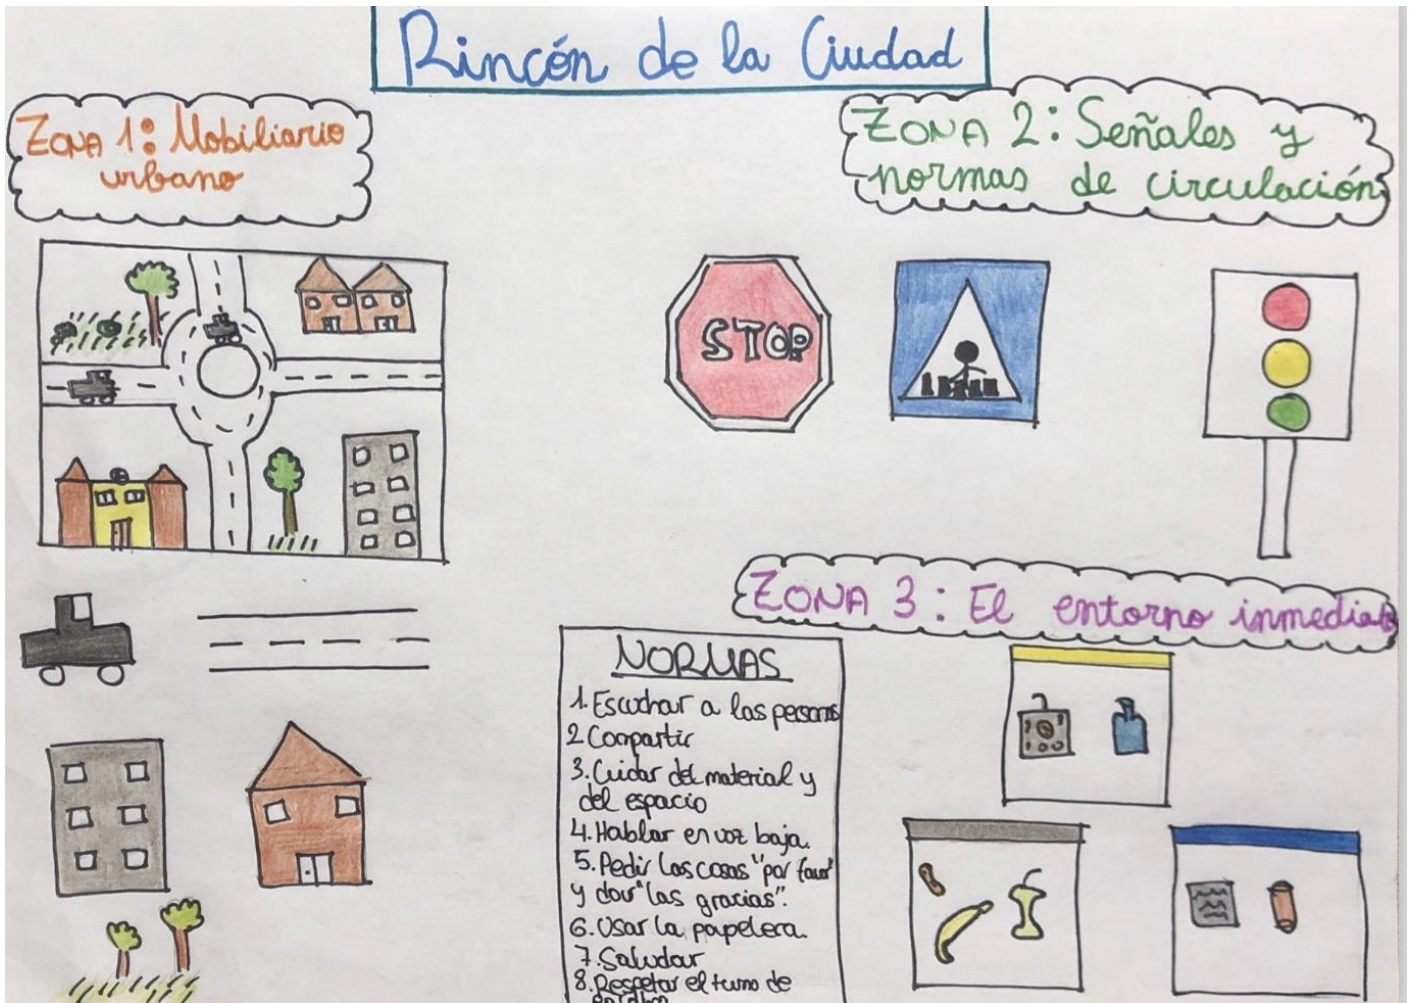 Rincón de la Ciudad
ZONA 1: Mobiliario
urbano
ZONA 2: Señales y
normas de circulación
STOP
ZONA 3: El entorno inmediato
NORMAS
1. Escuchar a las personas
2 Compartir
3. Cuidar del material y
del espacio
4. Hablar en voz baja.
5. Pedir las cosas "por favor"
y dar "las gracias".
6. Usar la papelera.
7. Saludar
8. Respetar el turno de